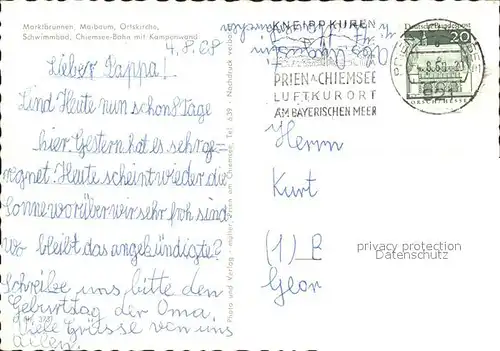 Marktbrunnen, Maibaum, Ortskirche,
Schwimmbad, Chiemsee-Bahn mit Kampenwand
4.8.68
Lieber Pappa!
Sind Heute nun schon 8 Tage
hier. Gestern hat es sehr ge=
regnet. Heute scheint wieder die
Sonne worüber wir sehr froh sind
wo bleibt das angekündigte?
Schreibe uns, bitte den
Geburtstag der Oma.
Viele Grüsse von uns
allen.
KNEIPPKUREN
PRIEN A. CHIEMSEE
LUFTKURORT
AM BAYERISCHEN MEER
Deutsche Bundespost
20
LORSCH/HESSEN
Herrn
Kurt
(1) B
Geor
privacy protection
Datenschutz